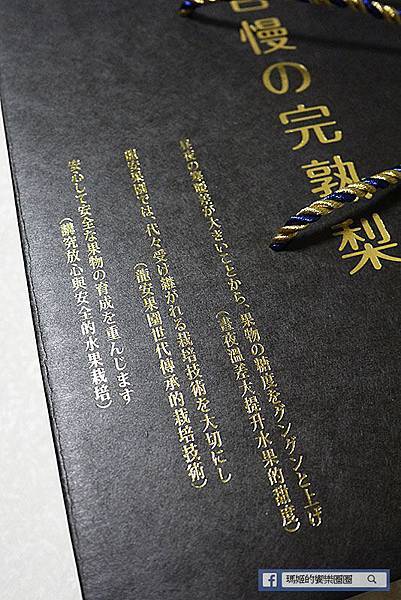 慢の完熟梨
昼夜の寒暖差が大きいことから、果物の糖度をグングンと上げ
（晝夜溫差大提升水果的甜度）
龍安果園では、代々受け継がれる栽培技術を大切にし
（龍安果園世代傳承的栽培技術）
安心して安全な果物の育成を重んじます
（講究放心與安全的水果栽培）
瑪姬的饗樂圈圈